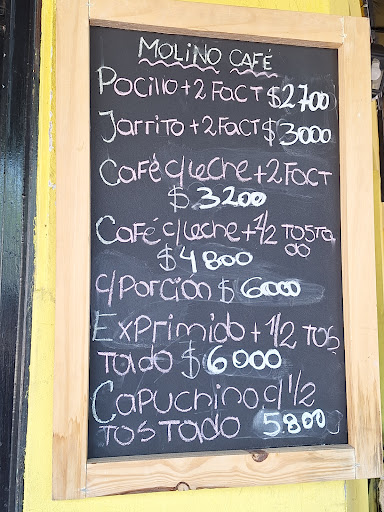 MOLINO CAFÉ
POCILLO + 2 FACT $2700
JARRITO + 2 FACT $3000
CAFÉ C/LECHE + 2 FACT
$ 3200
CAFÉ C/LECHE + 1/2 TOSTA
DO
$4800
C/PORCIÓN $ 6000
EXPRIMIDO + 1/2 TOS
TADO $6000
CAPUCHINO C/ 1/2
TOSTADO 5.800